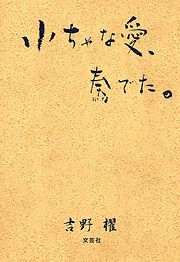 小ちゃな愛、
奏でた。
かな
吉野 櫂
文芸社